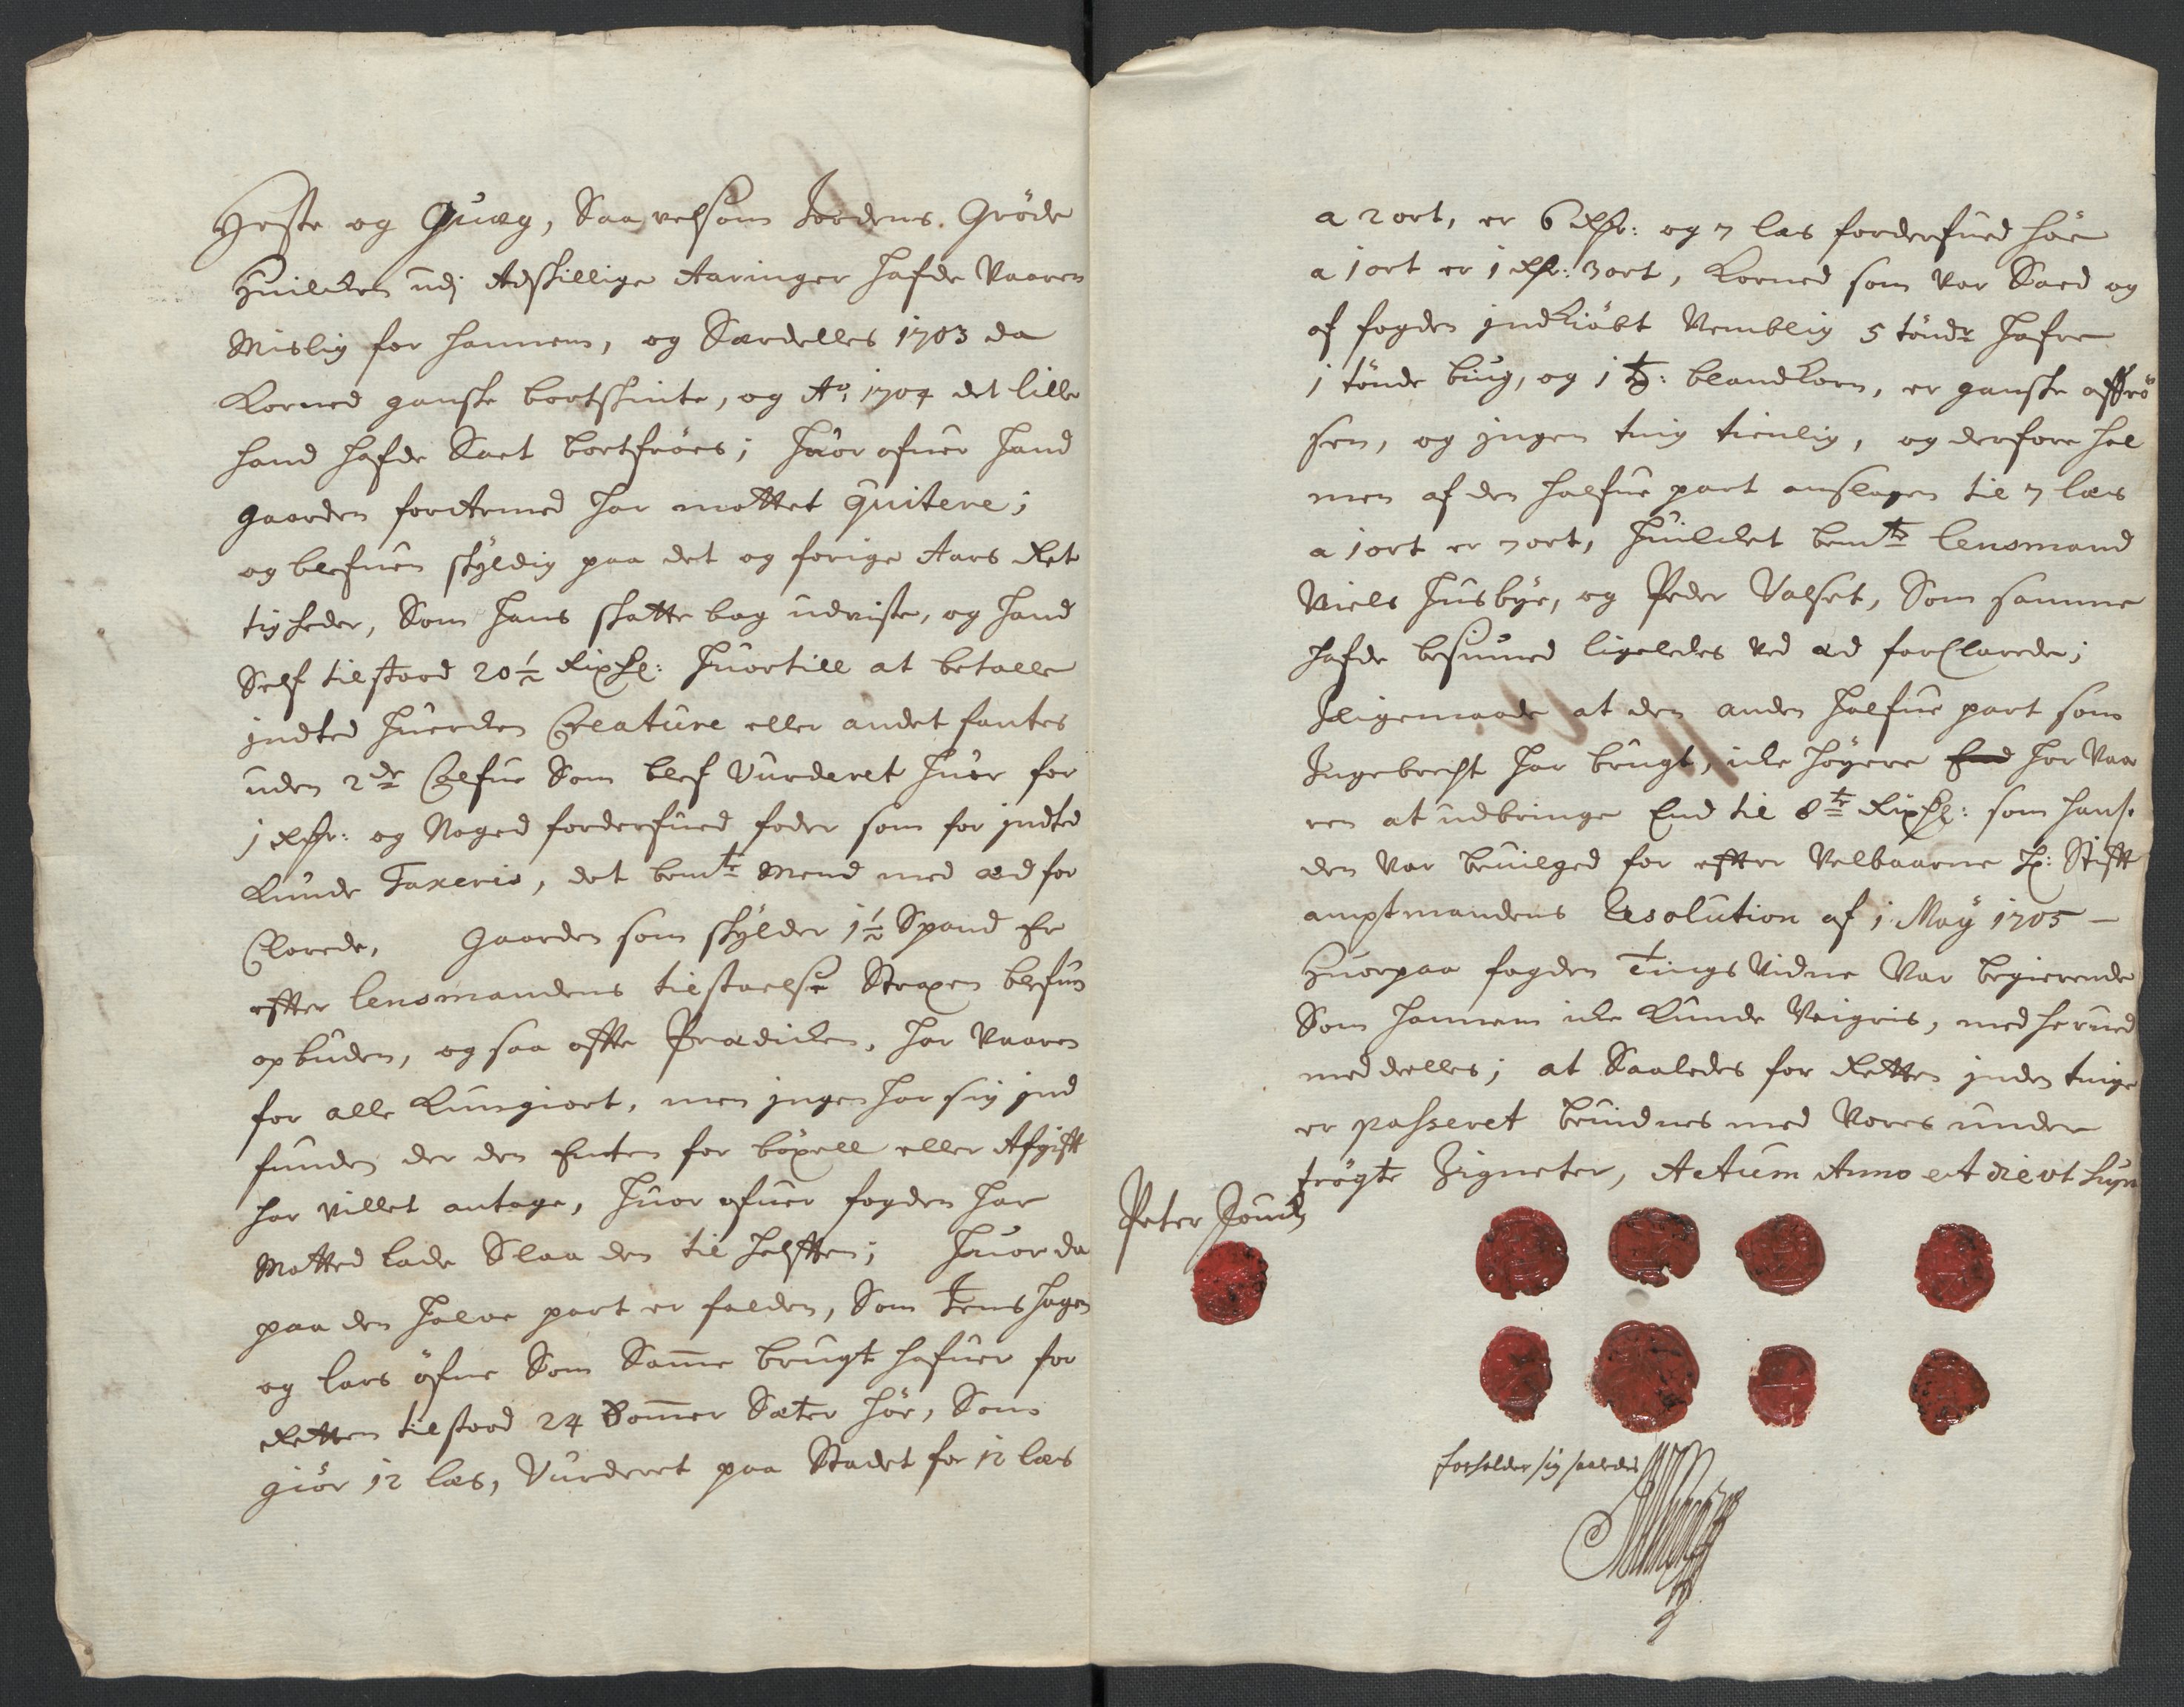 Heste og Quæg, Saa velsom Jordens Grøde
Huilcken udj Adskillige Aaringer hafde Vaaren
Mislig for hannem, og Særdelles 1703 da
Korned ganske bortskinte, og Ao: 1704 det lille
hand hafde Saaet bortfrøes; huor ofuer hand
gaarden forarmed har mottet quitere;
og blefuen skyldig paa det og forige Aars Ret
tigheder, Som hans skatte bog udviste, og hand
Self tilstaaed 20½ Rixdl: huortill at betalle
indted huercken Creature eller andet fantes
uden 2de Calfue Som blef Vurderet huer for
1 Rdr: og Noged forderfued foder som for indted
Kunde Taxeris, det bemte Mend med æd for
Clarede, Gaarden som skylder 1½ Spand Er
efter lensmandens tilstaaelse Straxen blefuen
opbuden, og saa ofte Prædicken, har Vaaren
for alle Kungiort, men ingen har sig ind
funden der den Enten for böxell eller Afgift
har villet antage, huor ofuer fogden har
Matted lade Slaa den til helften; huor da
paa den halve part er falden, Som Jens hagen
og lars öfne Som Samme brugt hafuer for
Retten tilstaaed 24 Sommer Sæter höe, Som
giör 12 læs, Vurderet paa Stædet for 12 læs
a 2 ort, er 6 Rdr: og 7 læs forderfued höe
a 1 ort er 1 Rdr: 3 ort, Korned som var Saaed og
af fogden indkiöbt Nemblig 5 tönder hafre
1 tönde biug, og 1 td: blandkorn, er ganske affrö
sen, og ingen ting tienlig, og derfore hal
men af den halfue part anslagen til 7 læs
a 1 ort er 7 ort, huilcket bemte lensmand
Niels Husbye, og Peder Valset, Som samme
hafde besiuned ligeledes ved æd forClarede;
Iligemaade at den anden halfue part som
Ingebrecht har brugt, icke höyere har Vaa
ren at udbringe End til 8te Rixdl: som hans
den var bevilged for efter Velbaarne Hr: Stift
amptmandens Resolution af 1 May 1705 —
Huorpaa fogden Tings Vidne Var begierende
Som hannem icke Kunde Veigris, med herved
meddeelles; at Saaledes for Retten inden tinge
er passeret bevidnes med Vores under
trögte Zigneter, Actum Anno et die ut supra
Peter Jouds
forholder sig saaledes